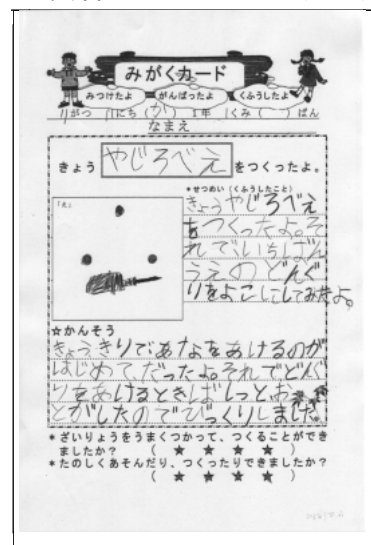 みがくカード
みつけたよ がんばったよ くふうしたよ
11がつ 1にち(か) 1年 1くみ( )ばん
なまえ
きょう やじろべえ をつくったよ。
*せつめい(くふうしたこと)
「え」
きょうやじろべえ
をつくったよ。そ
れで、いちばん
うえのどんぐ
りをよこにしてみたよ。
☆かんそう
きょう、きりであなをあけるのが
はじめてだったよ。それでどんぐ
りをあけるときばしっとお
とがしたのでびっくりしました。
*ざいりょうをうまくつかって、つくることができ
ましたか? (★ ★ ★ ★)
*たのしくあそんだり、つくったりできましたか?
(★ ★ ★ ★)